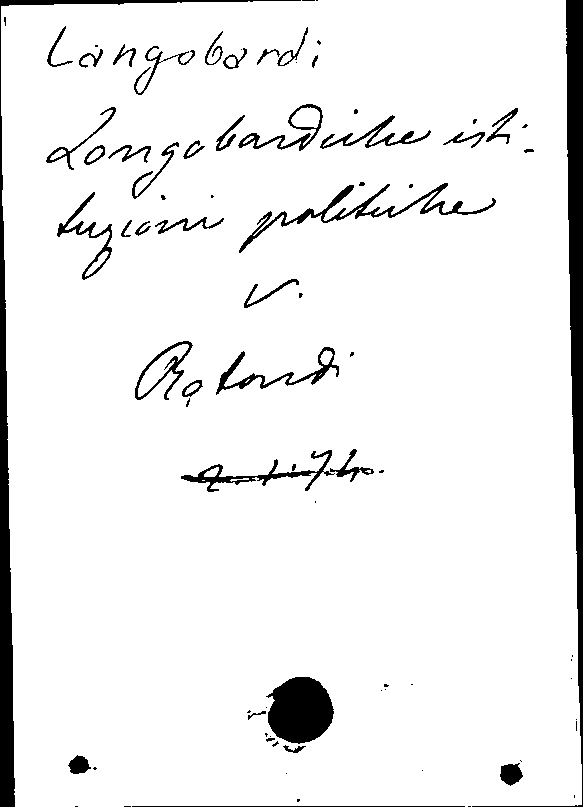 Langobardi
Longobardiche isti-
tuzioni politiche
v.
Rotondi